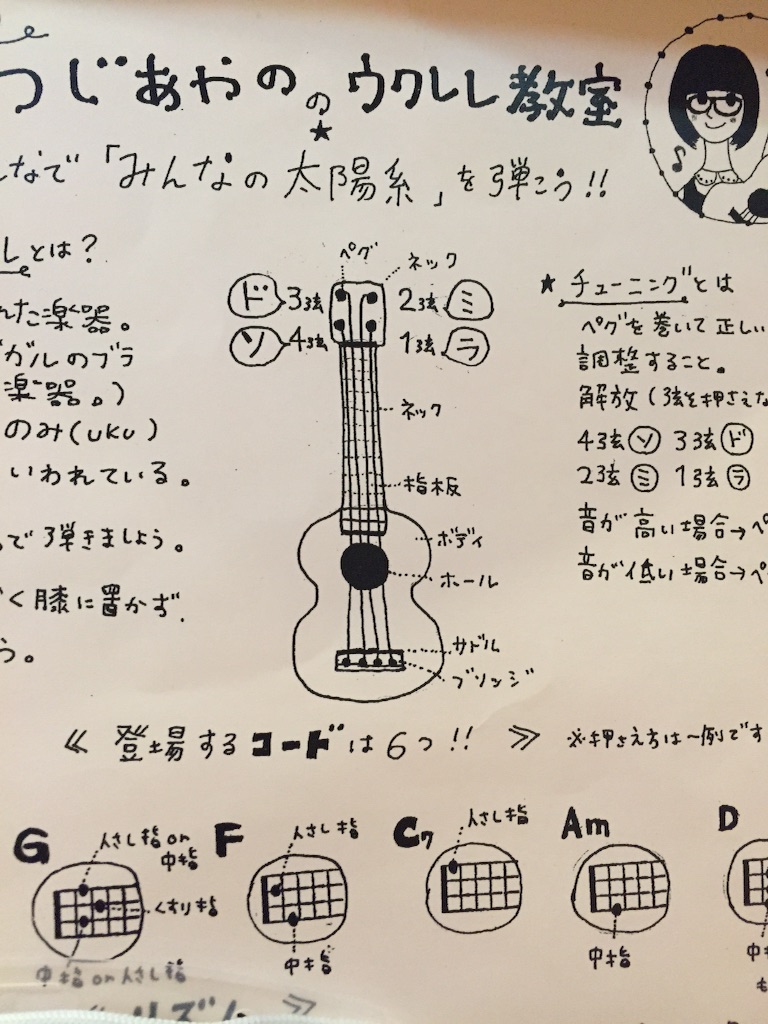 つじあやのの ウクレレ教室
なで「みんなの太陽系」を弾こう!!
レとは?
れた楽器。
ガルのブラ
楽器。)
のみ(uku)
いわれている。
で弾きましょう。
く膝に置かず、
う。
ペグ ネック
ド 3弦 2弦 ミ
ソ 4弦 1弦 ラ
ネック
指板
ボディ
ホール
サドル
ブリッジ
★ チューニングとは
ペグを巻いて正しい
調整すること。
解放(弦を押さえな
4弦ソ 3弦ド
2弦ミ 1弦ラ
音が高い場合→ペ
音が低い場合→ペ
≪ 登場するコードは6つ!! ≫ ※押さえ方は一例です
G 人さし指or中指
くすり指
中指or人さし指
F 人さし指
中指
C7 人さし指
Am
中指
D
中指
≪ リズム ≫